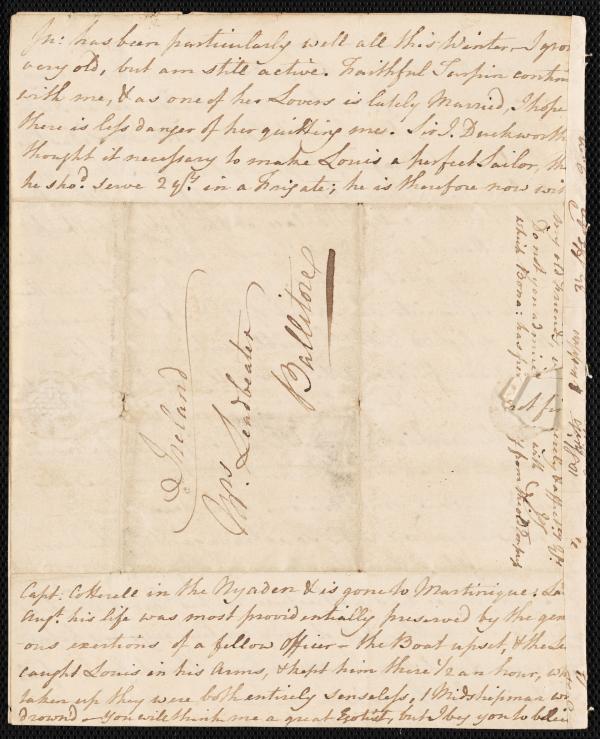 Jn: has been particularly well all this Winter – I grow
very old, but am still active. Faithful Turpin contin
with me, & as one of her Lovers is lately Married, I hope
there is less danger of her quitting me. Sir J. Duckworth
thought it necessary to make Louis a perfect Sailor, th
he sho.d serve 2 y.rs in a Frigate; he is therefore now wit
Mrs. Leadbeater
Ballitore
Ireland
my old friend
Do not you admire with
which Bona: has
Capt: Cottrell in the Nyaden & is gone to Martinique; La
Aug.t his life was most providentially preserved by the gen
ous exertions of a fellow Officer – the Boat upset, & the
caught Louis in his Arms, & kept him there 1/2 an hour, wh
taken up they were both entirely senseless, 1 Midshipman w
drown'd – You will think me a great Egotist, but I beg you to belie